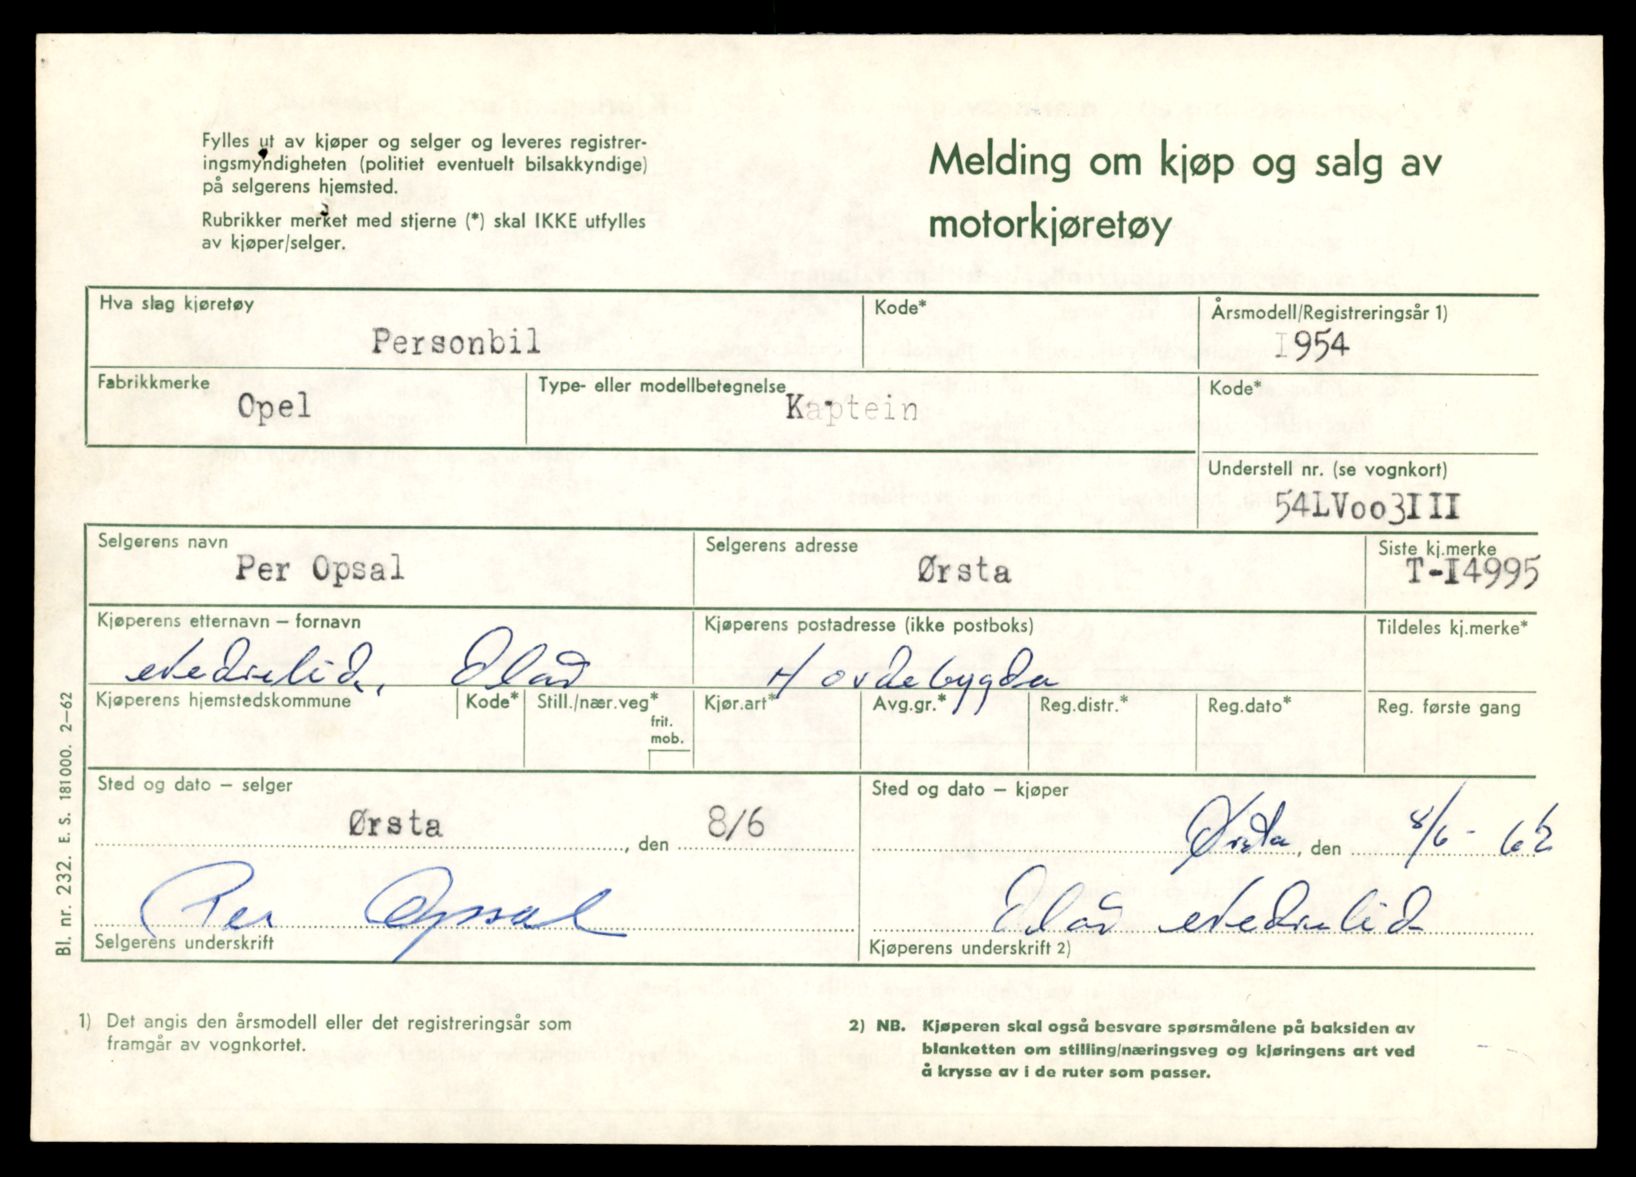 Fylles ut av kjøper og selger og leveres registrer-
ingsmyndigheten (politiet eventuelt bilsakkyndige)
på selgerens hjemsted.
Rubrikker merket med stjerne (*) skal IKKE utfylles
av kjøper/selger.
Melding om kjøp og salg av
motorkjøretøy
Hva slag kjøretøy
Personbil
Kode*
Årsmodell/Registreringsår 1)
I954
Fabrikkmerke
Opel
Type- eller modellbetegnelse
Kaptein
Kode*
Understell nr. (se vognkort)
54LVoo3III
Selgerens navn
Per Opsal
Selgerens adresse
Ørsta
Siste kj.merke
T-I4995
Kjøperens etternavn – fornavn
Nedrelid, Olav
Kjøperens postadresse (ikke postboks)
Hovdebygda
Tildeles kj.merke*
Kjøperens hjemstedskommune
Kode*
Still./nær.veg*
frit.
mob.
Kjør.art*
Avg.gr.*
Reg.distr.*
Reg.dato*
Reg. første gang
Sted og dato – selger
Ørsta, den 8/6
Per Opsal
Selgerens underskrift
Sted og dato – kjøper
Ørsta, den 8/6-62
Olav Nedrelid
Kjøperens underskrift 2)
Bl. nr. 232. E. S. 181000. 2–62
1) Det angis den årsmodell eller det registreringsår som
framgår av vognkortet.
2) NB. Kjøperen skal også besvare spørsmålene på baksiden av
blanketten om stilling/næringsveg og kjøringens art ved
å krysse av i de ruter som passer.